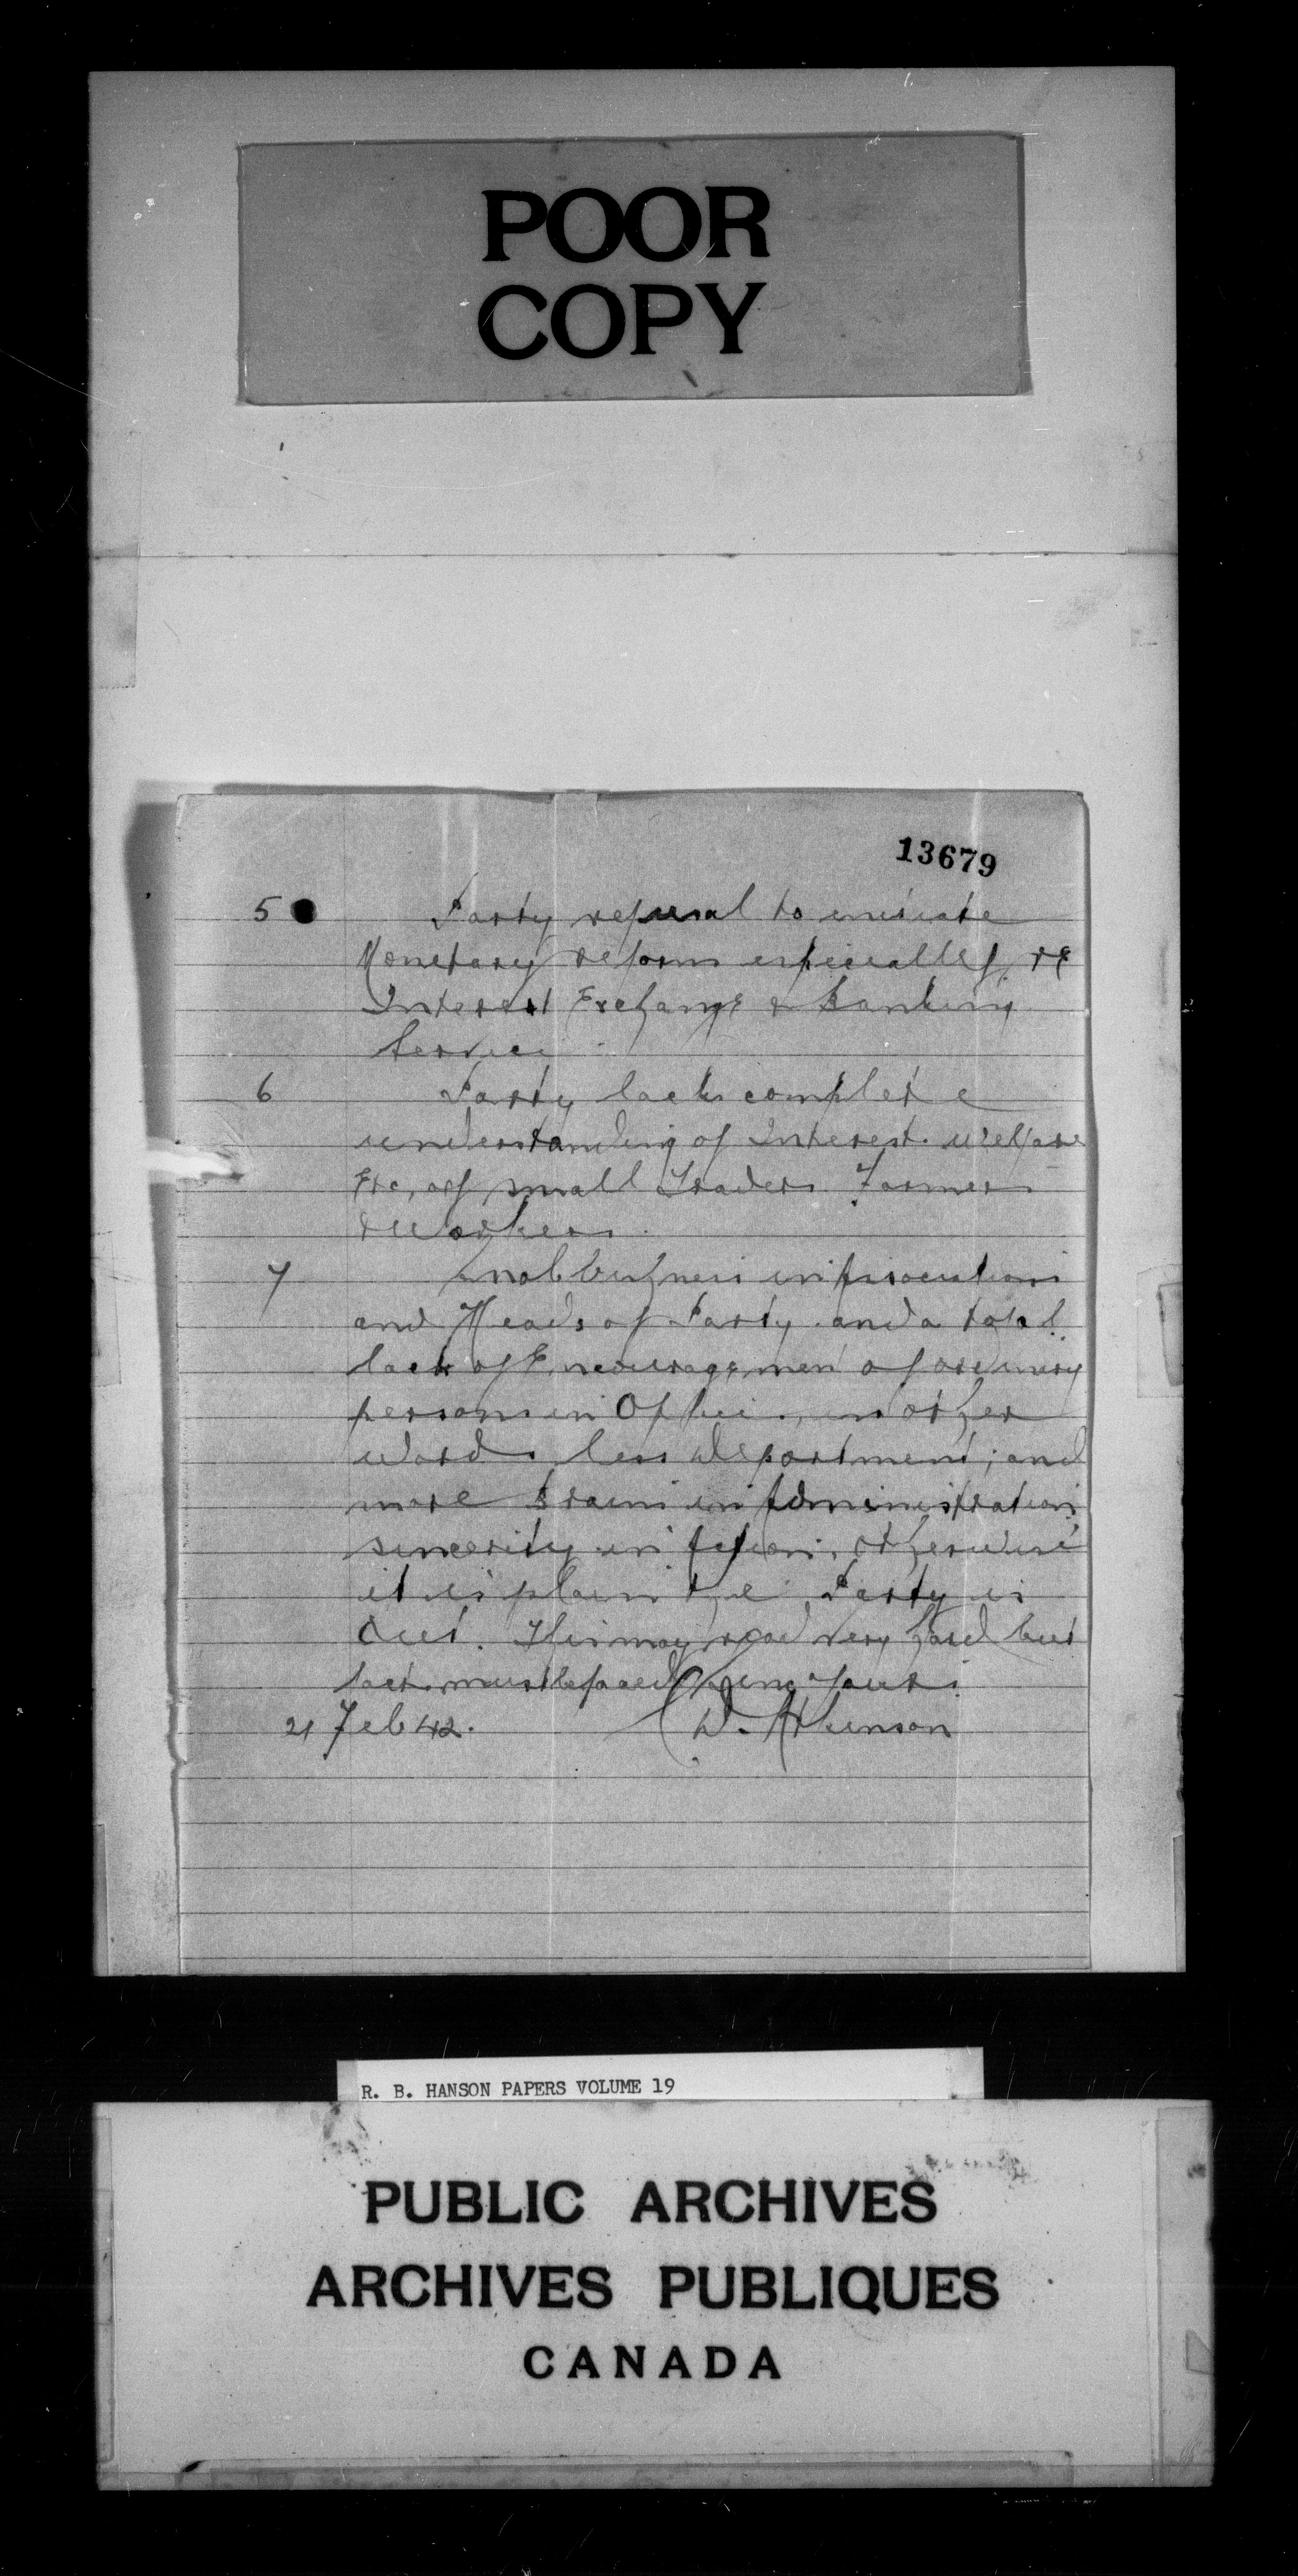 POOR
COPY
13679
5 Party refusal to initiate
Monetary reform especially re
Interest Exchange & Banking
Service
6 Party lacks complete
understanding of Interest. welfare
Etc, of small Traders Farmers
& Workers.
7 Snobbishness in
and Heads of Party and a total
lack of Encouragement of ordinary
persons in Office, in other
words less department; and
more Brains in Administration
sincerity in Action, otherwise
it is plain the Party is
Out. This may read very hard but
facts must be faced yours
21 Feb 42. W. Atkinson
R. B. HANSON PAPERS VOLUME 19
PUBLIC ARCHIVES
ARCHIVES PUBLIQUES
CANADA